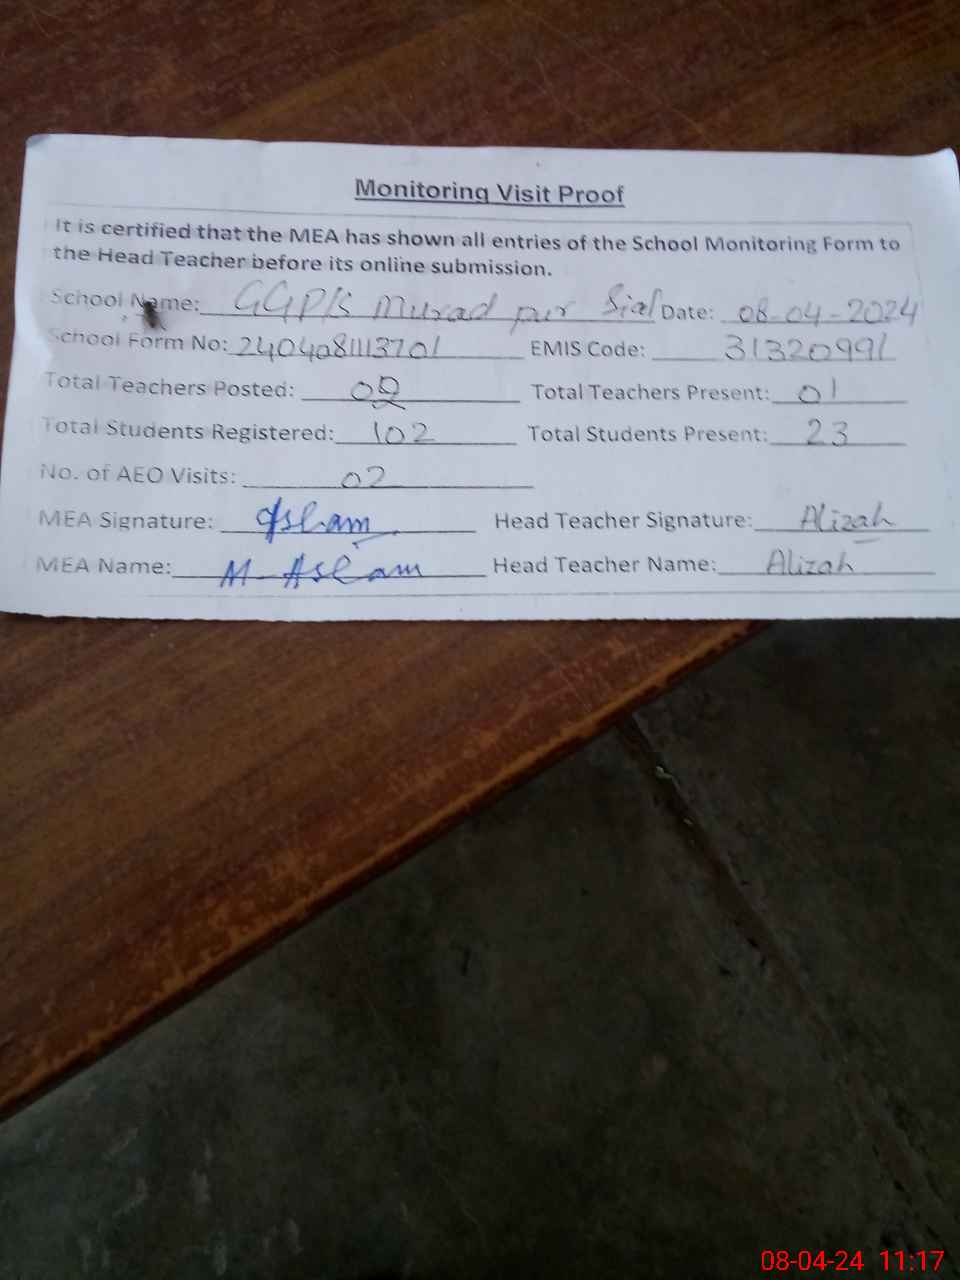 Monitoring Visit Proof
It is certified that the MEA has shown all entries of the School Monitoring Form to
the Head Teacher before its online submission.
School Name: GGP/S Murad pur Sial Date: 08-04-2024
School Form No: 2404081113701 EMIS Code: 31320991
Total Teachers Posted: 02 Total Teachers Present: 01
Total Students Registered: 102 Total Students Present: 23
No. of AEO Visits: 02
MEA Signature: Aslam Head Teacher Signature: Alizah
MEA Name: M-Aslam Head Teacher Name: Alizah
08-04-24 11:17